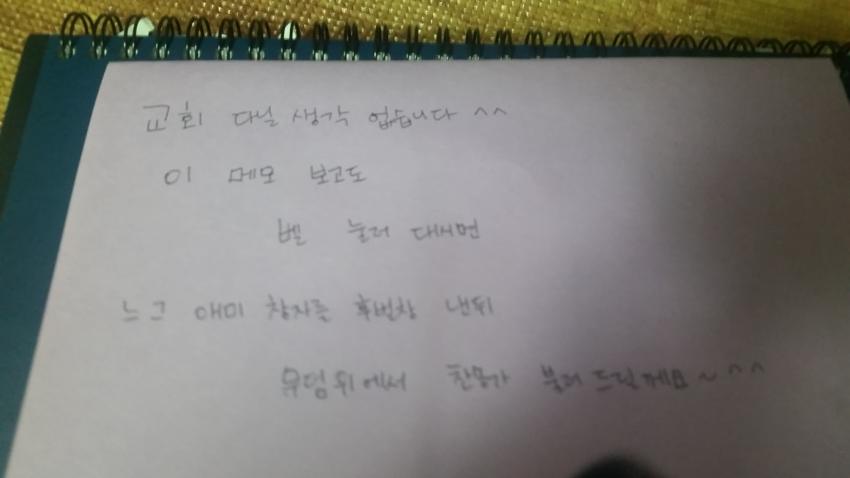 교회 다닐 생각 없습니다 ^^
이 메모 보고도
벨 눌러 대시면
느그 애미 창자를 후벼창 낸뒤
무덤위에서 찬송가 불러 드릴께요~^^